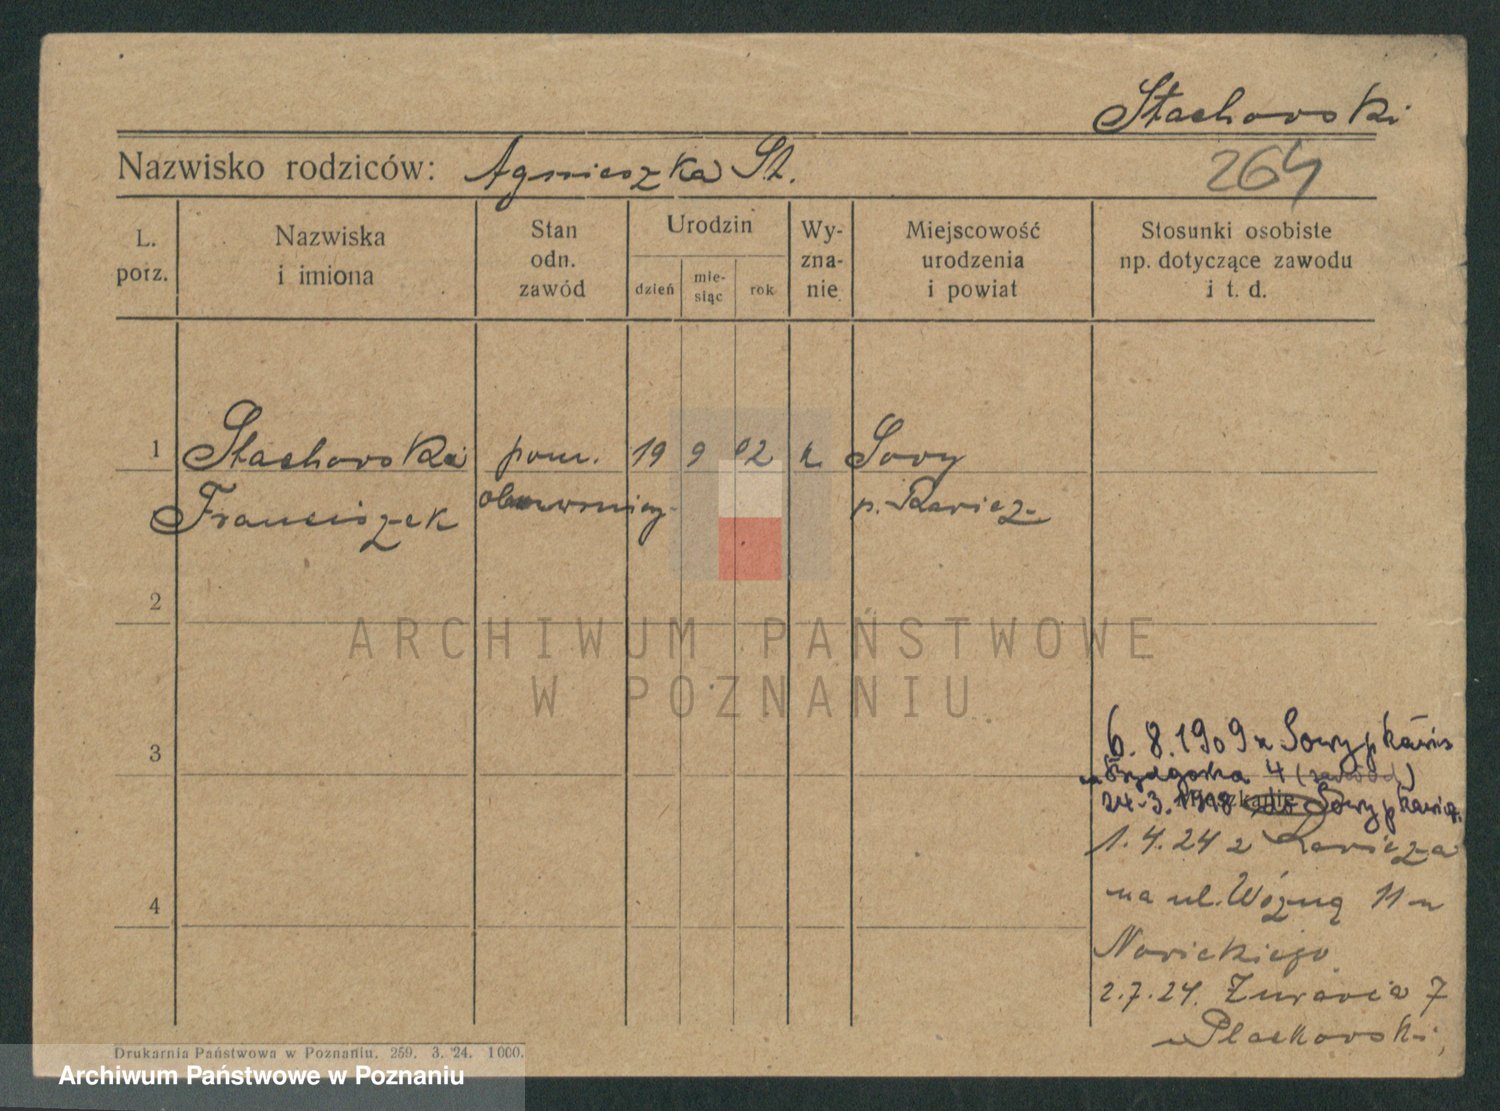 Stachowski
Nazwisko rodziców: Agnieszka St.
264
L. porz.
Nazwiska i imiona
Stan odn. zawód
Urodzin
dzień
mie-
siąc
rok
Wy-
zna-
nie
Miejscowość
urodzenia
i powiat
Stosunki osobiste
np. dotyczące zawodu
i t. d.
1 Stachowski pom. 19 9 02 k Sowy
Franciszek p. Rawicz
2
ARCHIWUM PAŃSTWOWE
W POZNANIU
3
6. 8. 1909 z Sowy p
4
24.3.1918 Sowy p
1.4.24 z Rawicza
na ul. Woźną 11 u
4
Nowickiego
2.7.24. Żurawia 7
Drukarnia Państwowa w Poznaniu. 259. 3. 24. 1000.
Archiwum Państwowe w Poznaniu